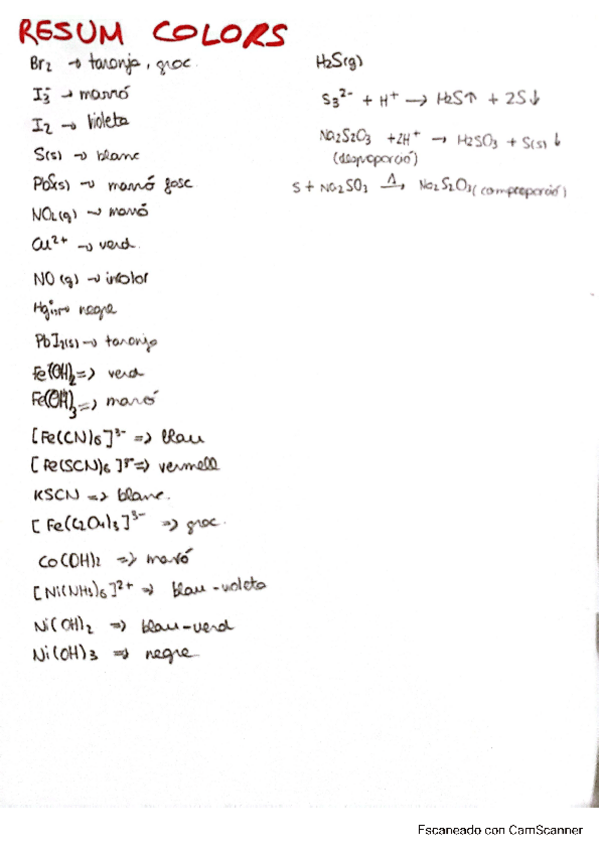 RESUM COLORS
Br2 → taronja, groc.
I3- → marró
I2 → Violeta
S(s) → blanc
PbS(s) → marró fosc
NO2(g) → marró
Cu2+ → verd
NO (g) → incolor
negre
PbI2(s) → taronja
Fe(OH)2 => verd
Fe(OH)3 => marró
[Fe(CN)6]3- => blau
[Fe(SCN)6]3- => vermell
KSCN => blanc.
[Fe(C2O4)3]3- => groc.
Co(OH)2 => marró
[Ni(NH3)6]2+ => blau-violeta
Ni(OH)2 => blau-verd
Ni(OH)3 => negre
H2S(g)
S3 2- + H+ → H2S↑ + 2S↓
Na2S2O3 + 2H+ → H2SO3 + S(s) ↓
(desproporció)
S + Na2SO3 Δ→ Na2S2O3 (comproporció)
Escaneado con CamScanner